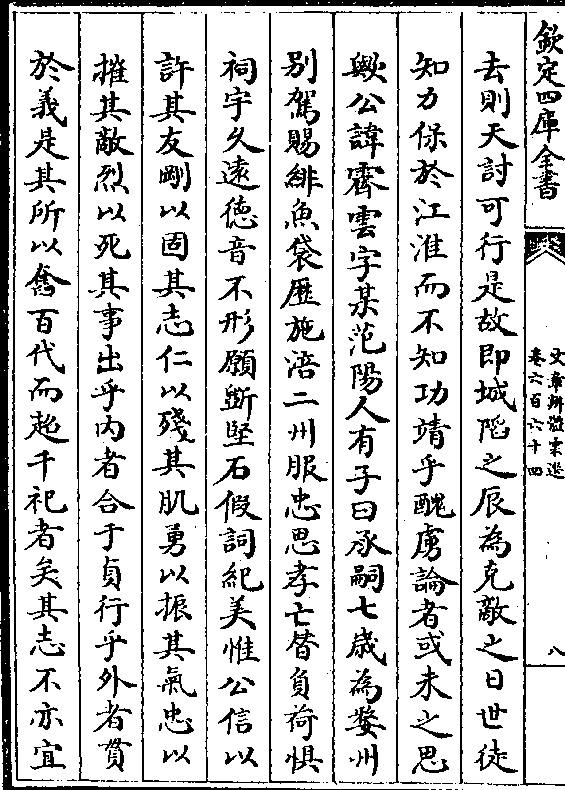 欽定四庫全書
文章辨體彙選
卷六百六十四
八
去則天討可行是故即城陷之辰為克敵之日世徒
知力保於江淮而不知功靖乎醜虜論者或未之思
歟公諱霽雲字某范陽人有子曰承嗣七歲為婺州
別駕賜緋魚袋歷施涪二州服忠思孝亡替負荷懼
祠宇久遠德音不形願斲堅石假詞紀美惟公信以
許其友剛以固其志仁以殘其肌勇以振其氣忠以
摧其敵烈以死其事出乎內者合于貞行乎外者貫
於義是其所以奮百代而超千祀者矣其志不亦宜